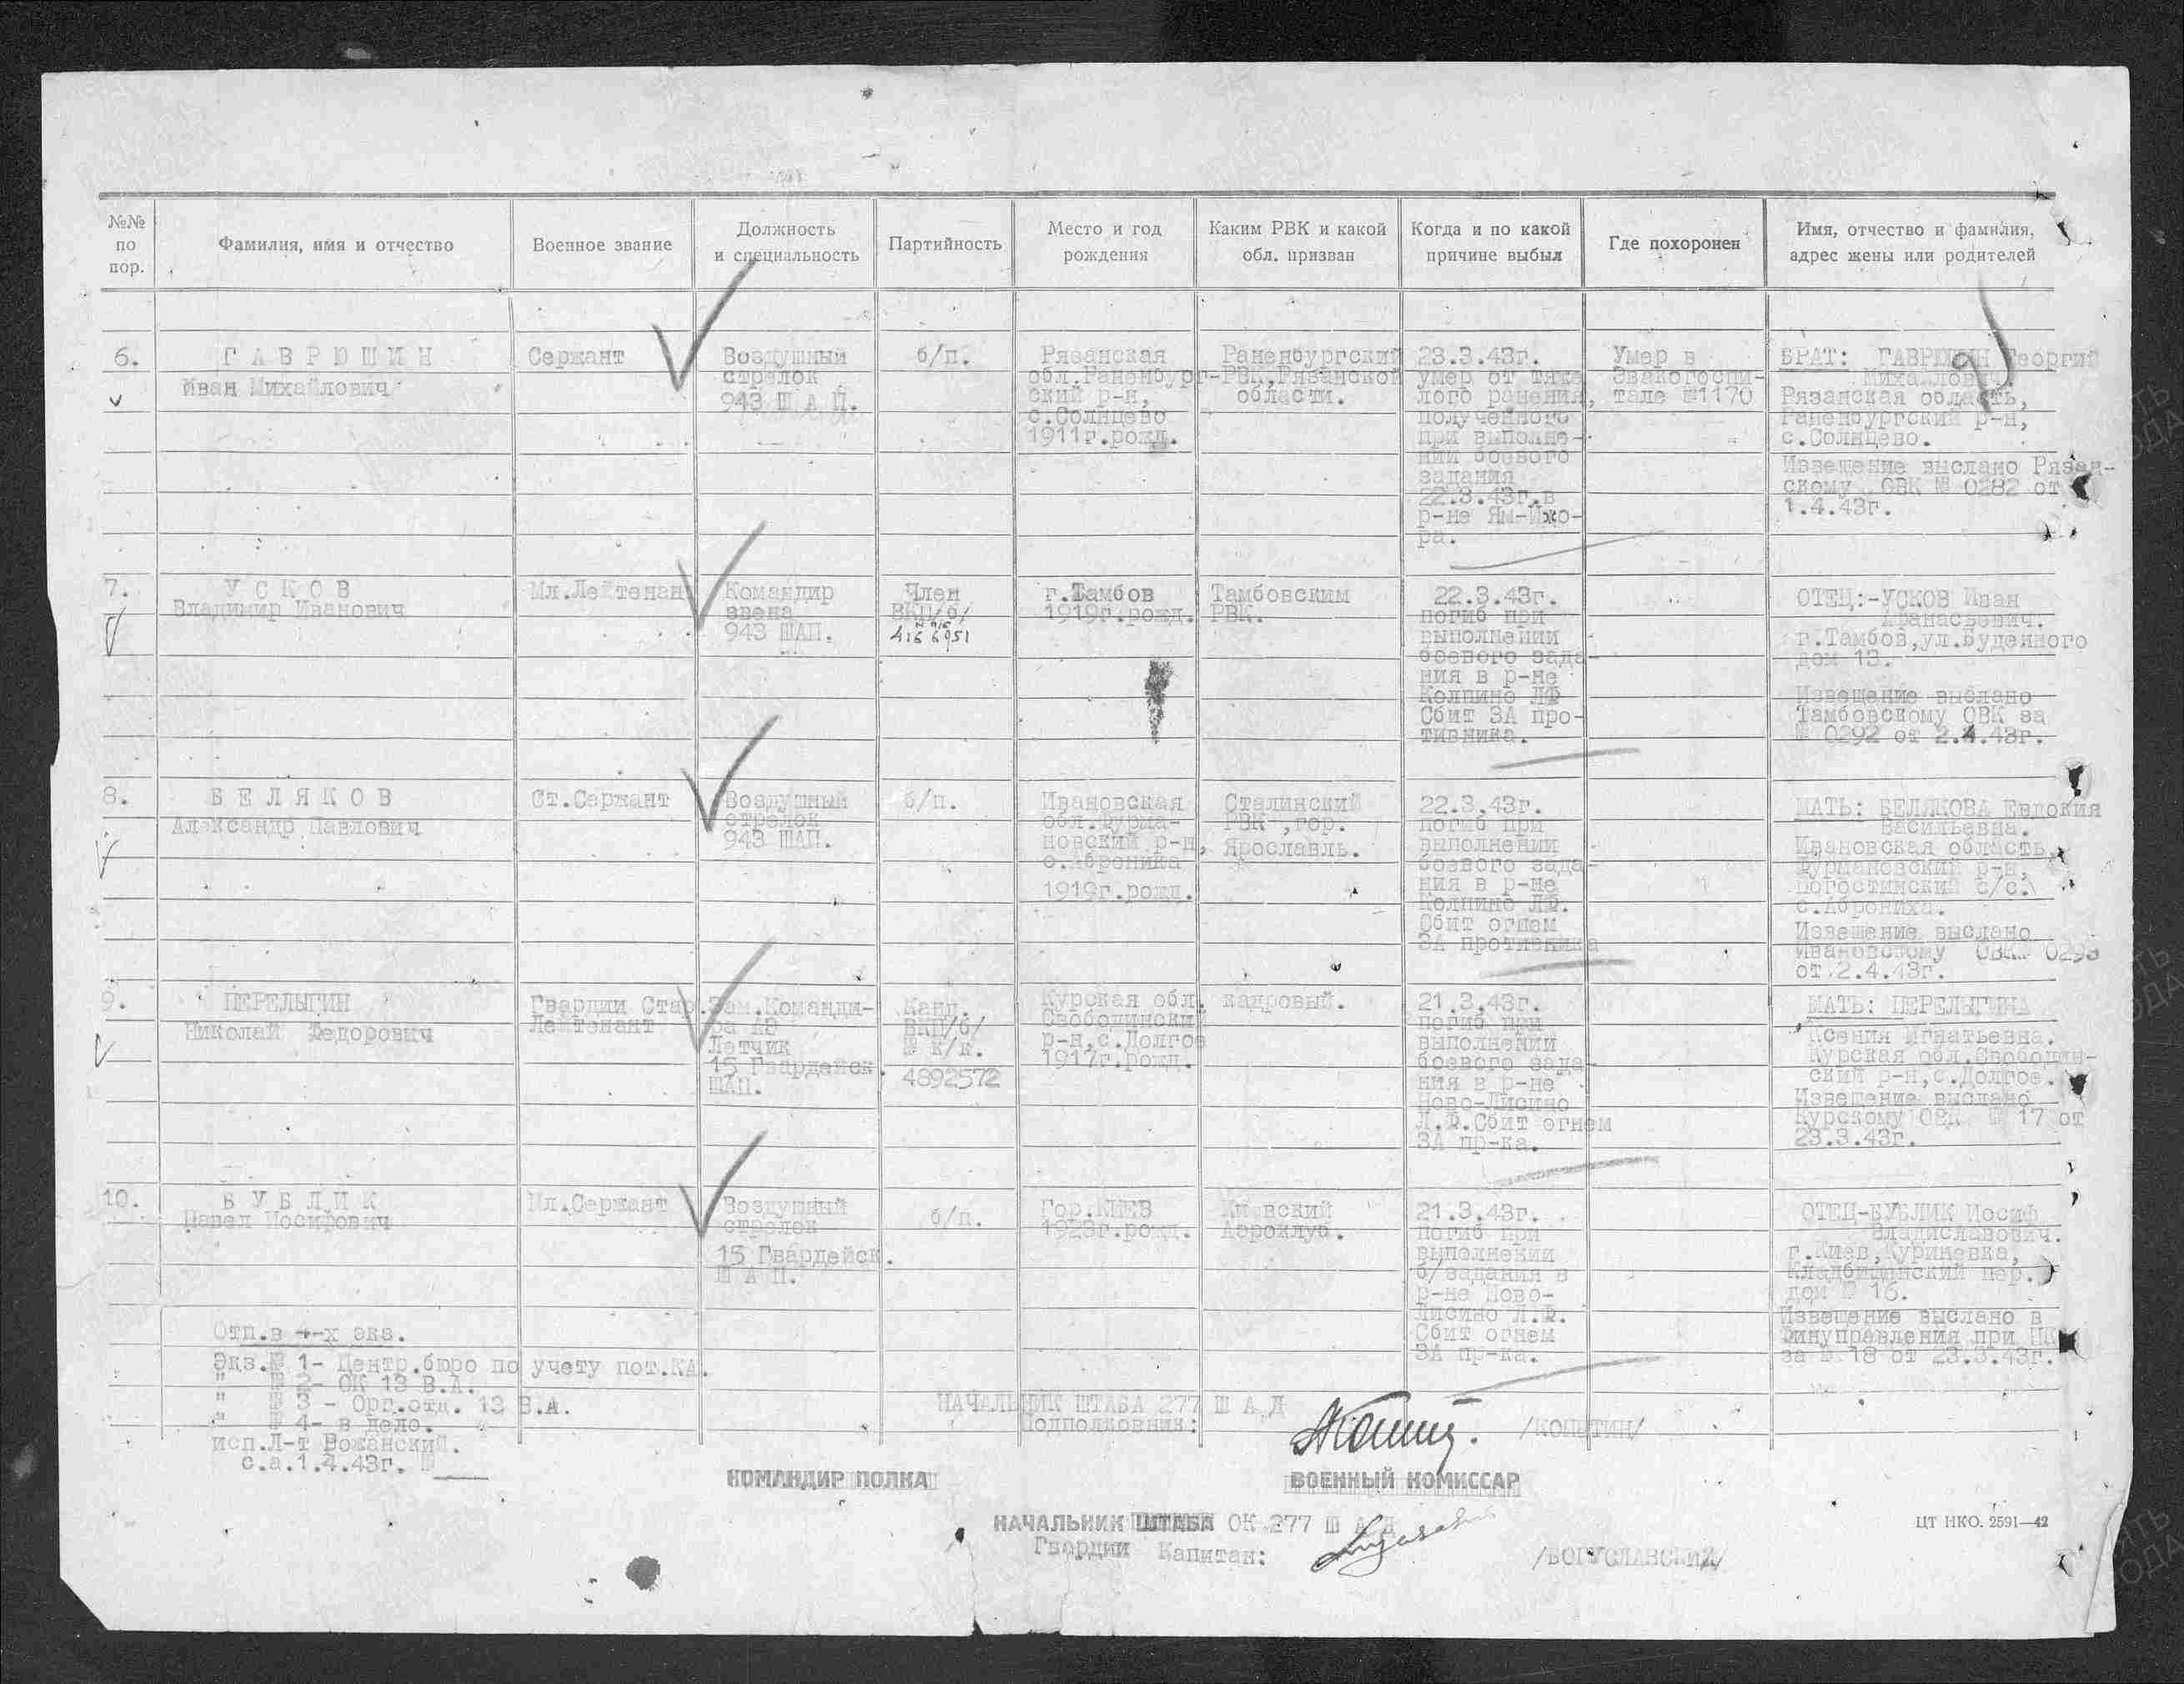 №№ по пор.
Фамилия, имя и отчество
Военное звание
Должность и специальность
Партийность
Место и год рождения
Каким РВК и какой обл. призван
Когда и по какой причине выбыл
Где похоронен
Имя, отчество и фамилия, адрес жены или родителей
6.
ГАВРЮШИН
Иван Михайлович
Сержант
Воздушный
стрелок
943 ШАП.
б/п.
Рязанская
обл.Раненбург-
ский р-н,
с.Солнцево
1911г.рожд.
Раненбургский
РВК,Рязанской
области.
23.3.43г.
умер от тяже
лого ранения,
полученного
при выполне-
нии боевого
задания
22.3.43г.в
р-не Ям-Ижо-
ра.
Умер в
Эвакогоспи-
тале №1170
БРАТ: ГАВРЮШИН Георгий
Михайлович
Рязанская область,
Раненбургский р-н,
с.Солнцево.
Извещение выслано Рязан-
скому ОВК № 0282 от
1.4.43г.
7.
УСКОВ
Владимир Иванович
Мл.Лейтенан
Командир
звена
943 ШАП.
Член
ВКП/б/
4166951
г.Тамбов
1919г.рожд.
Тамбовским
РВК.
22.3.43г.
погиб при
выполнении
боевого зада-
ния в р-не
Колпино ЛФ
Сбит ЗА про-
тивника.
ОТЕЦ:-УСКОВ Иван
Афанасьевич.
г.Тамбов,ул.Буденного
дом 13.
Извещение выслано
Тамбовскому ОВК за
№ 0292 от 2.4.43г.
8.
БЕЛЯКОВ
Александр Павлович
Ст.Сержант
Воздушный
стрелок
943 ШАП.
б/п.
Ивановская
обл.Фурма-
новский р-н,
с.Аброниха
1919г.рожд.
Сталинский
РВК ,гор.
Ярославль.
22.3.43г.
погиб при
выполнении
боевого зада-
ния в р-не
Колпино ЛФ.
Сбит огнем
ЗА противника
МАТЬ: БЕЛЯКОВА Евдокия
Васильевна.
Ивановская область,
Фурмановский р-н,
Погостинский с/с.
с.Аброниха.
Извещение выслано
Ивановскому ОВК 0293
от 2.4.43г.
9.
ПЕРЕЛЫГИН
Николай Федорович
Гвардии Стар.
Лейтенант
Зам.Команди-
ра АЭ
Летчик
15 Гвардейск.
ШАП.
Канд.
ВКП/б/
№ к/к.
4892572
Курская обл.
Свободинский
р-н,с.Долгое
1917г.рожд.
кадровый.
21.3.43г.
погиб при
выполнении
боевого зада-
ния в р-не
Ново-Лисино
Л.Ф.Сбит огнем
ЗА пр-ка.
МАТЬ: ПЕРЕЛЫГИНА
Ксения Игнатьевна.
Курская обл.Свободин-
ский р-н,с.Долгое.
Извещение выслано
Курскому ОВК № 17 от
23.3.43г.
10.
БУБЛИК
Павел Иосифович
Мл.Сержант
Воздушный
стрелок
15 Гвардейск.
ШАП.
б/п.
Гор.КИЕВ
1923г.рожд.
Киевский
Аэроклуб.
21.3.43г.
погиб при
выполнении
б/задания в
р-не Ново-
Лисино Л.Ф.
Сбит огнем
ЗА пр-ка.
ОТЕЦ-БУБЛИК Иосиф
Владиславович.
г.Киев,Куриневка,
Кладбищенский пер.
дом № 16.
Извещение выслано в
Финуправления при НК
за № 18 от 23.3.43г.
Отп.в 4-х экз.
Экз.№ 1- Центр.бюро по учету пот.КА.
" № 2- ОК 13 В.А.
" № 3 - Орг.отд. 13 В.А.
" № 4- в дело.
исп.Л-т Вожанский.
с.а.1.4.43г. №
НАЧАЛЬНИК ШТАБА 277 ШАД
Подполковник:
/КОПАТИН/
КОМАНДИР ПОЛКА
ВОЕННЫЙ КОМИССАР
НАЧАЛЬНИК ШТАБА ОК 277 ШАД
Гвардии Капитан:
/БОГУСЛАВСКИЙ/
ЦТ НКО. 2591—42